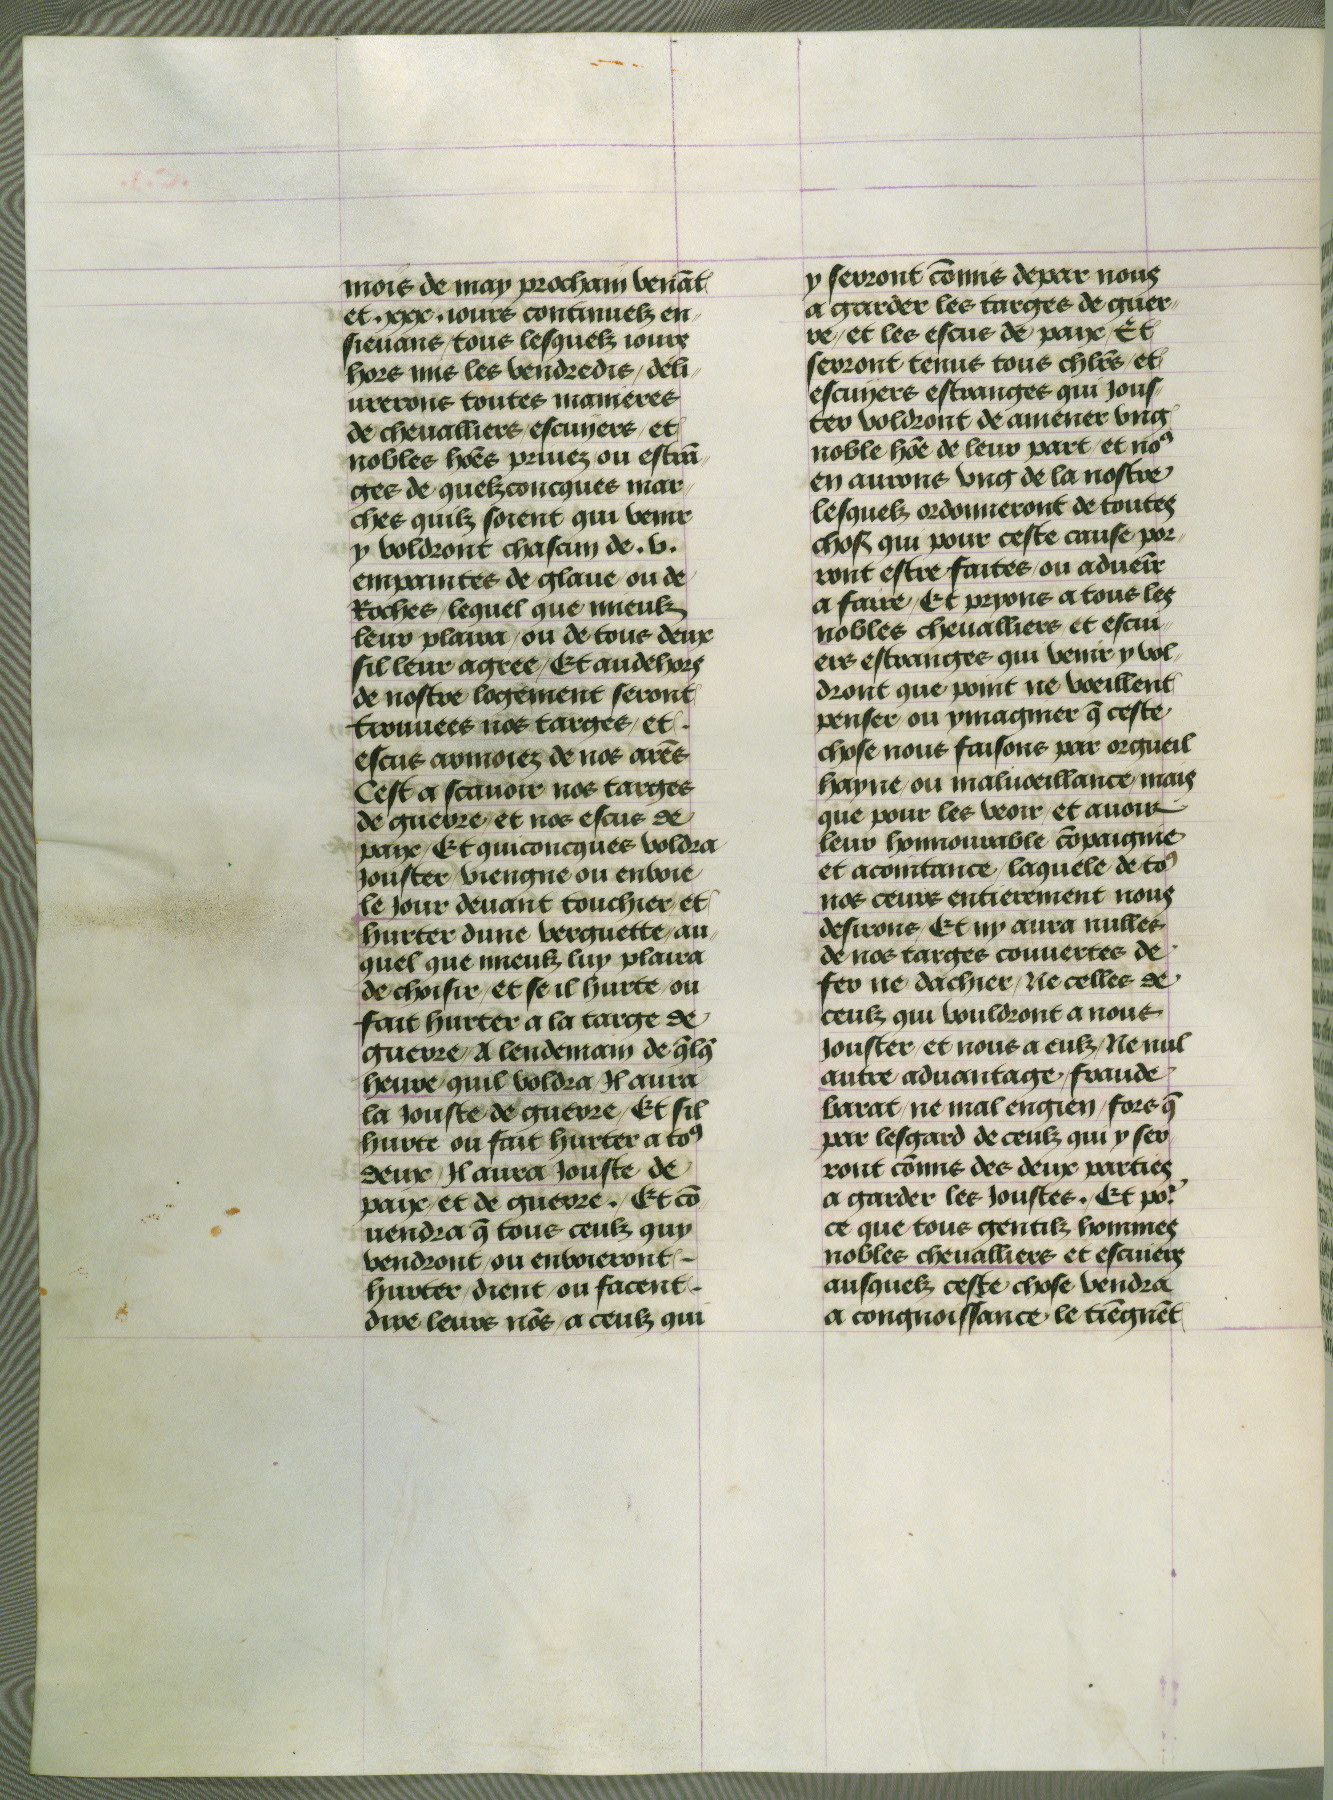 mois de may prochain venāt
et .xxx. iours continuelz en-
sieuans / tous lesquelz iours
hors mis les vendredis / deli-
urerons toutes manieres
de cheualliers / escuyers / et
nobles hōes priuez ou estrā-
ges de quelzconcques mar-
ches quilz soient qui venir
y voldront chascun de .v.
empaintes de glaue ou de
Roches / lequel que mieulz
leur plaira / ou de tous deux
sil leur agree / Et au dehors
de nostre logement seront
trouuees nos targes / et -
escus armoiez de nos armēs
Cest a scauoir nos targes
de guerre / et nos escus de
paix / Et quiconcques voldra
Jouster / viengne ou enuoie
le Jour deuant touchier et
hurter dune verguette / au-
quel que mieulz luy plaira
de choisir / et se il hurte / ou
fait hurter a la targe de
guerre / A lendemain de q̄lq̄
heure / quil voldra / Jl aura
la Jouste de guerre / Et sil
hurte ou fait hurter a toꝰ
deux / Jl aura Jouste de
paix / et de guerre . / Et cō
uendra q̄ tous ceulz quy
vendront / ou enuoieront -
hurter / dient / ou facent -
dire leurs nōs / a ceulz qui
y serront cōmis de par nous
a garder les targes de guer-
re / et les escus de paix / Et
serront tenus tous chlr̄s / et
escuyers estranges qui Jous-
ter voldront de amener vng
noble hōe de leur part / et noꝰ
en aurons vng de la nostre
lesquelz ordonneront de toutes
choses qui pour ceste cause por-
ront estre faites / ou aduenīr
a faire / Et pryons a tous les
nobles cheualliers et escui-
ers estranges qui venir y vol-
dront que point ne voeillent
penser ou ymaginer q̄ ceste
chose nous faisons par orgueil
hayne / ou maluoeillance / mais
que pour les veoir / et auoir
leur honnourable cōpaignie
et acointance / laquele de toꝰ
nos ceurs entierement nous
desirons / Et ny aura nulles
de nos targes couuertes de
fer ne dachier / Ne celles de
ceulz qui vouldront a nous
Jouster / et nous a eulz / Ne nul
autre aduantage / fraude
barat / ne mal engien / fors q̄
par lesgard de ceulz qui y ser
ront cōmis des deux parties
a garder les Joustes . Et poꝰ
ce que tous gentilz hommes
nobles cheualliers et escuiers
ausquelz ceste chose vendra
a congnoissance / le tiēgnēt